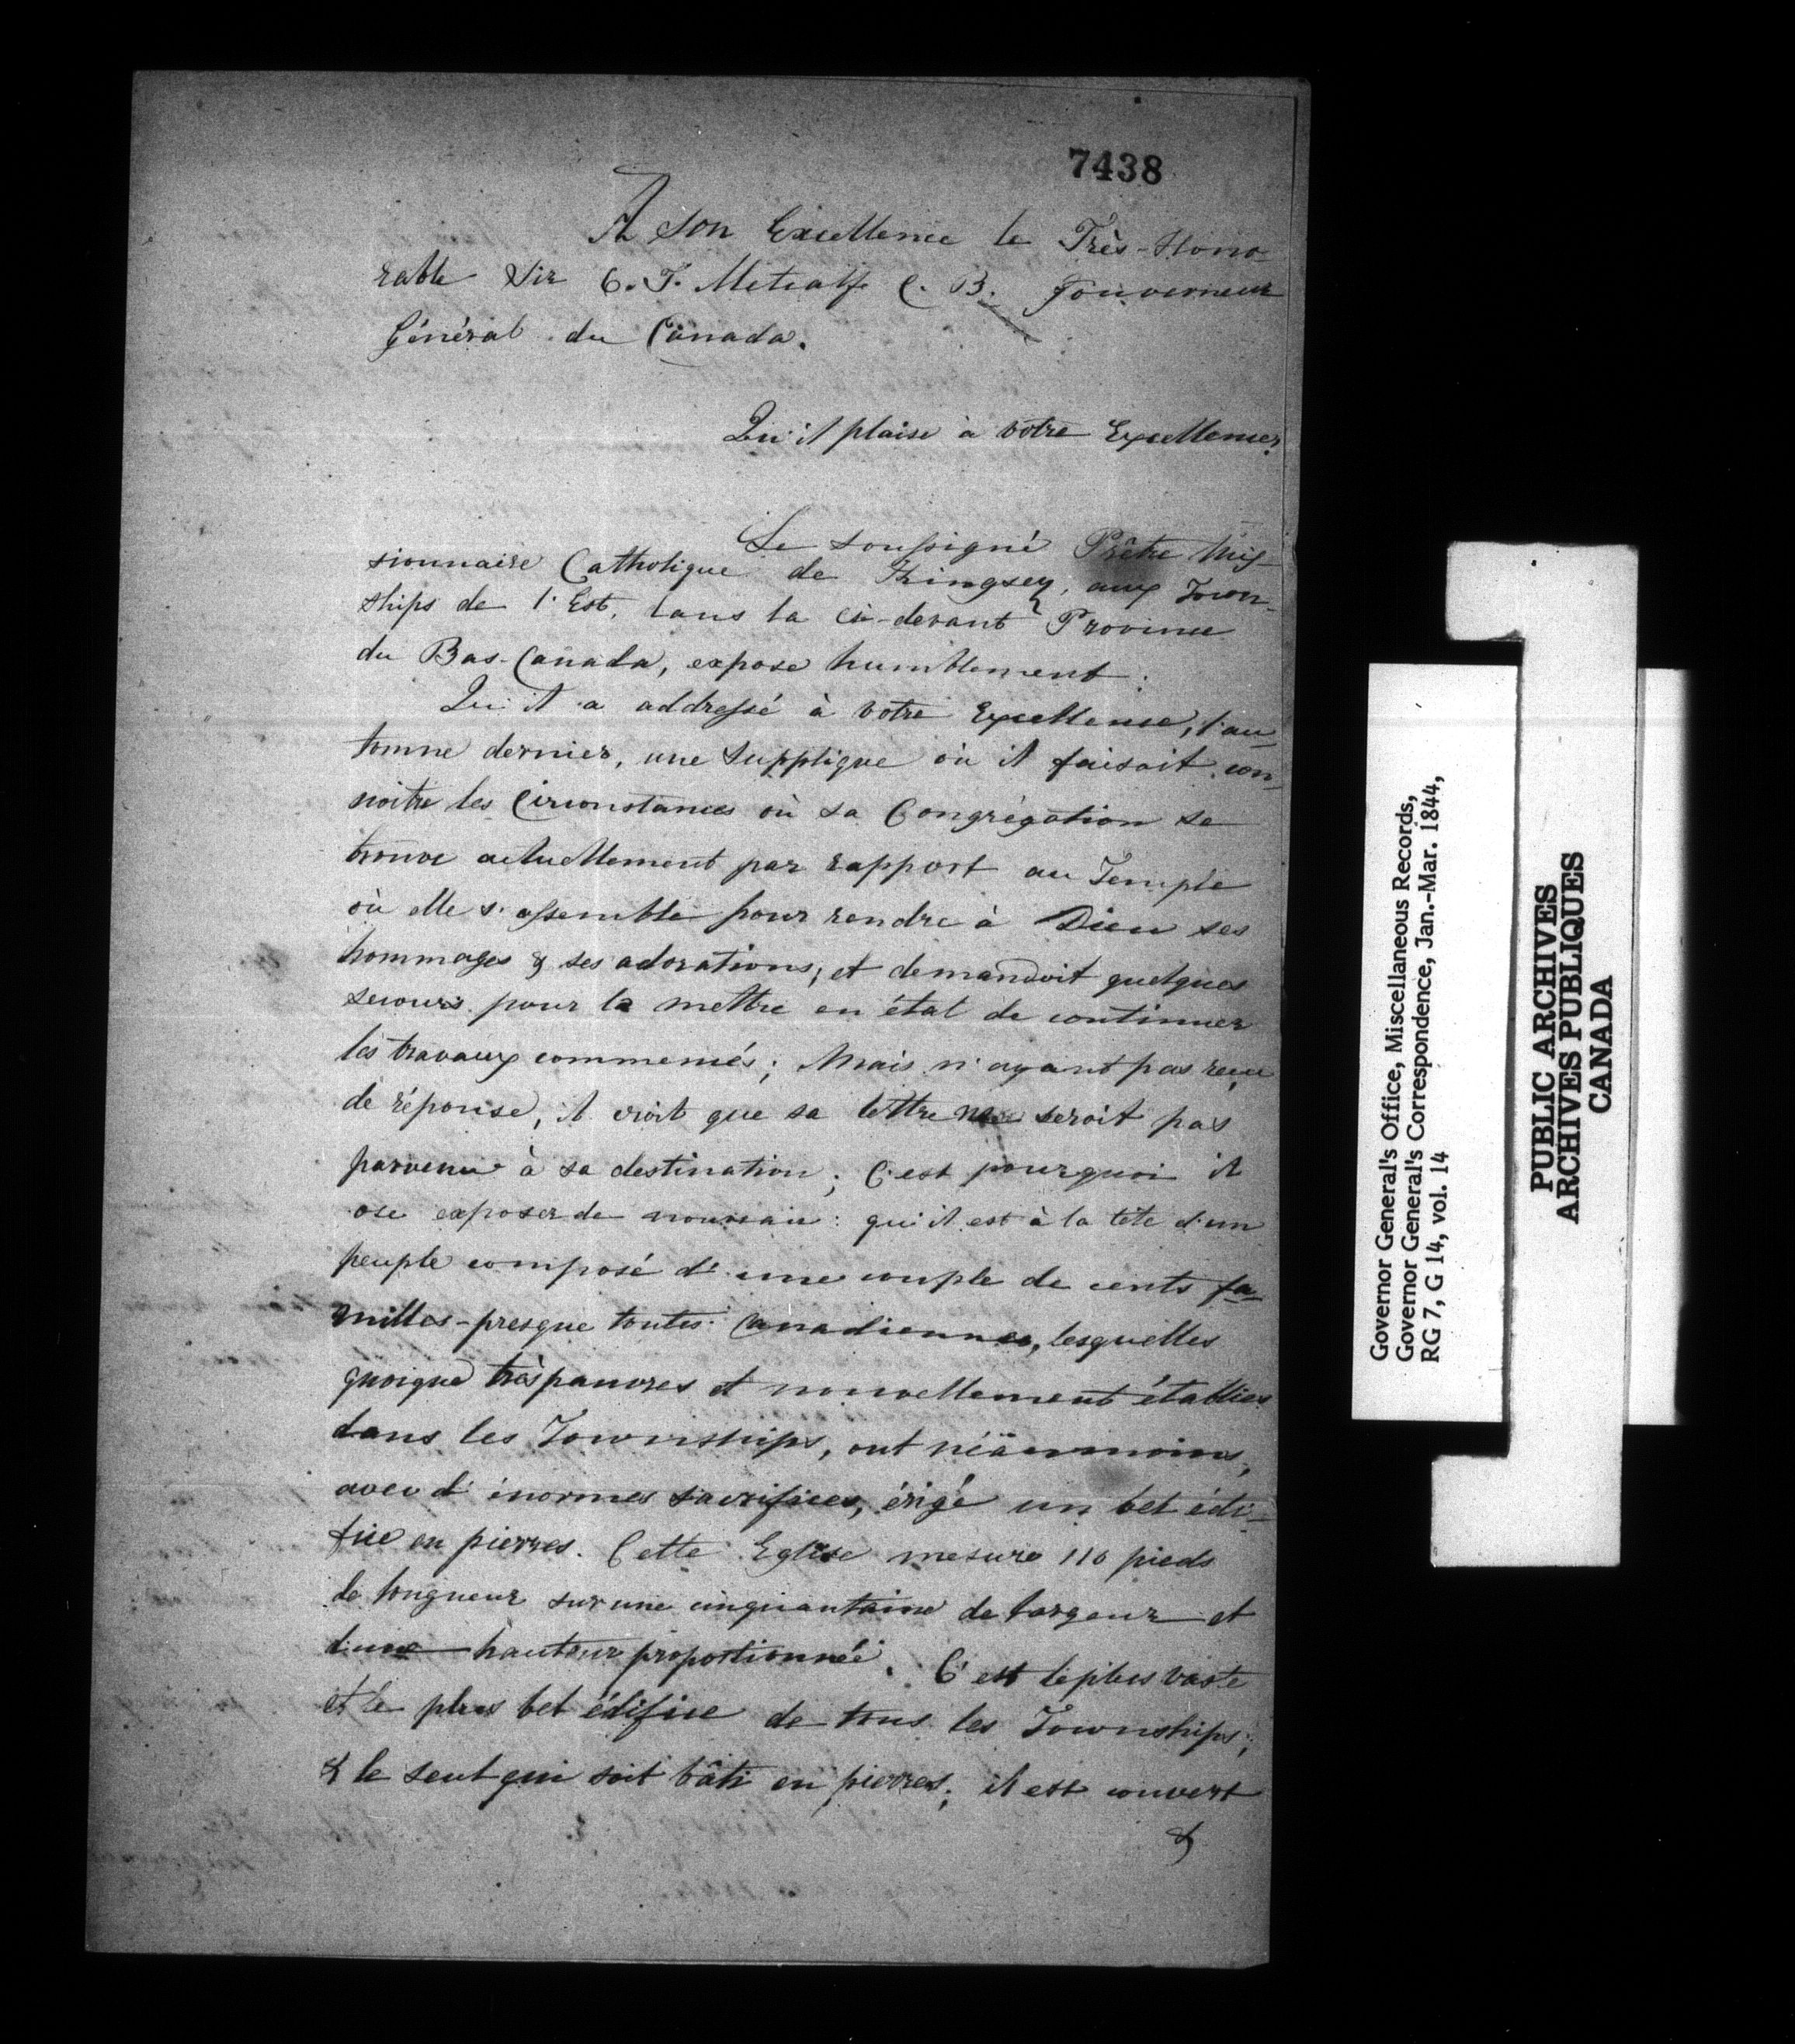 7438
A Son Excellence le Très-Hono-
rable Sir C. T. Metcalfe C. B. Gouverneur
Général du Canada.
Qu'il plaise à votre Excellence,
Le soussigné Prêtre Mis-
sionnaire Catholique de Kingsey, aux Town-
ships de l'Est, dans la ci-devant Province
du Bas-Canada, expose humblement :
Qu'il a addressé à votre Excellence, l'au-
tomne dernier, une supplique où il faisoit con-
noitre les circonstances où sa Congrégation se
trouve actuellement par rapport au Temple
où elle s'assemble pour rendre à Dieu ses
hommages & ses adorations; et demandoit quelques
secours pour la mettre en état de continuer
les travaux commencés; Mais n'ayant pas reçu
de réponse, il croit que sa lettre ne seroit pas
parvenue à sa destination; C'est pourquoi il
ose exposer de nouveau : qu'il est à la tête d'un
peuple composé d'une couple de cents fa-
milles presque toutes Canadiennes, lesquelles
quoique très pauvres et nouvellement établies
dans les Townships, ont néanmoins,
avec d'énormes sacrifices, érigé un bel édi-
fice en pierres. Cette Eglise mesure 110 pieds
de longueur sur une cinquantaine de largeur et
d'une hauteur proportionnée. C'est le plus vaste
et le plus bel édifice de tous les Townships;
& le seul qui soit bâti en pierres; il est couvert
&
Governor General's Office, Miscellaneous Records,
Governor General's Correspondence, Jan.-Mar. 1844,
RG 7, G 14, vol. 14
PUBLIC ARCHIVES
ARCHIVES PUBLIQUES
CANADA